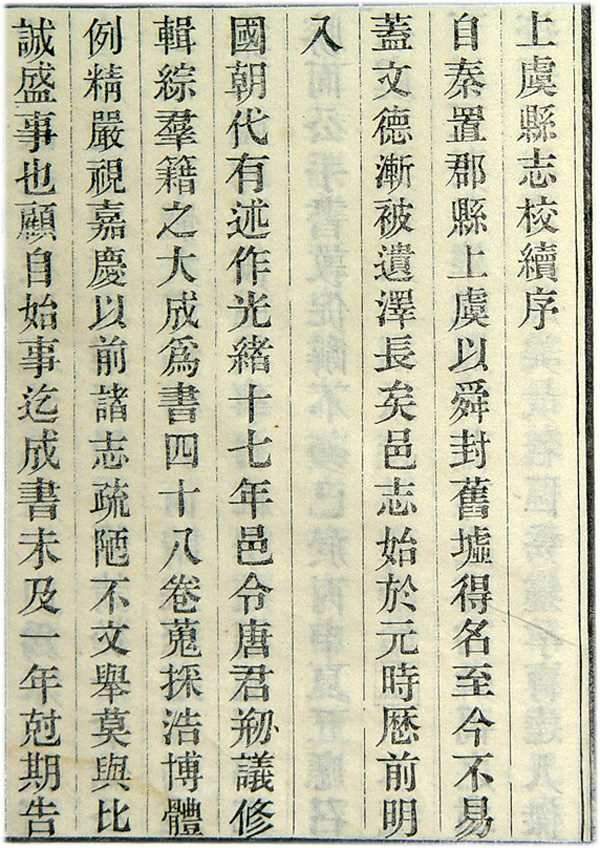 上虞縣志校續序
自秦置郡縣上虞以舜封舊墟得名至今不易
蓋文德漸被遺澤長矣邑志始於元時歷前明
入
國朝代有述作光緒十七年邑令唐君剏議修
輯綜羣籍之大成爲書四十八卷蒐採浩博體
例精嚴視嘉慶以前諸志疏陋不文舉莫與比
誠盛事也顧自始事迄成書未及一年尅期告